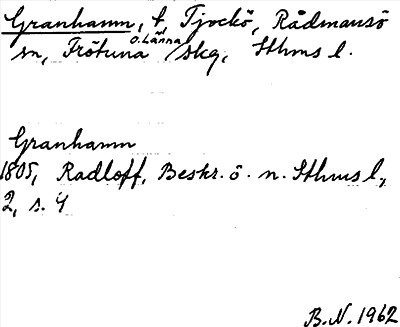 Granhamn, t, Tjockö, Rådmansö
sn, Frötuna o. Länna skg, Sthms l.
Granhamn
1805, Radloff, Beskr. ö. n. Sthms l,
2, s. 4
B.N. 1962